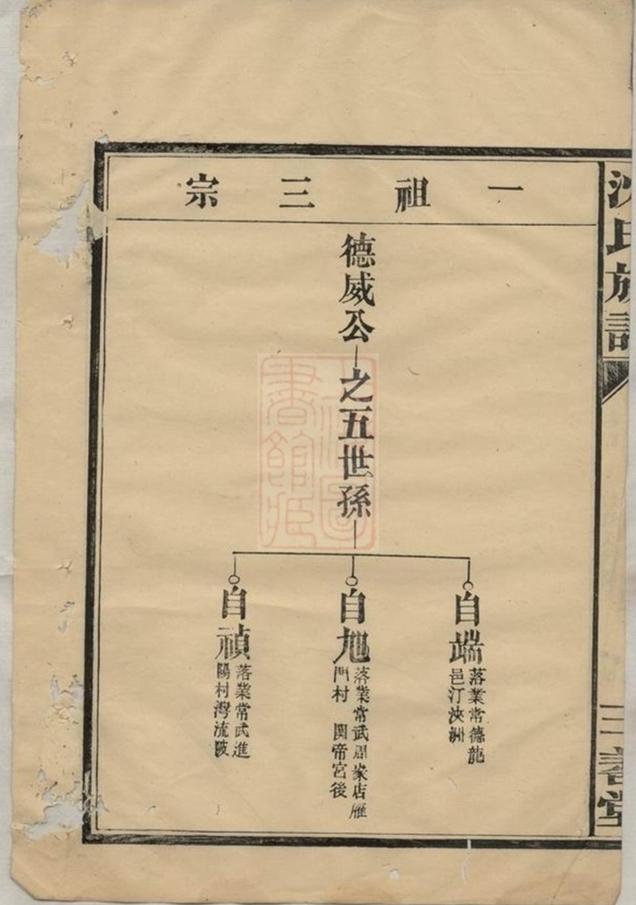 一祖三宗
德威公
之五世孫
自端
落業常德龍
邑汀浹洲
自旭
落業常武周家店雁
門村 関帝宮後
自禎
落業常武進
陽村灣流陂
沈氏族譜
三善堂